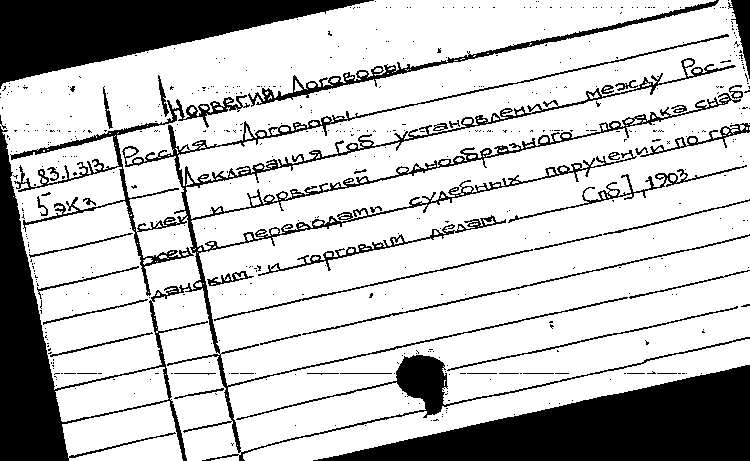 Норвегия. Договоры.
4.83.1.313 Россия. Договоры.
5 экз Декларация [об установлении между Рос-
сией и Норвегией однообразного порядка снаб-
жения переводами судебных поручений по граж
данским и торговым делам. Спб.], 1903.